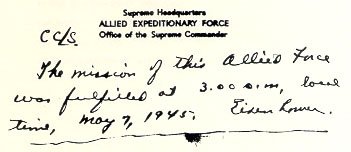 Supreme Headquarters
ALLIED EXPEDITIONARY FORCE
Office of the Supreme Commander
CC/S.
The mission of this Allied Force
was fulfilled at 3.00 a.m., local
time, May 7, 1945. Eisenhower.